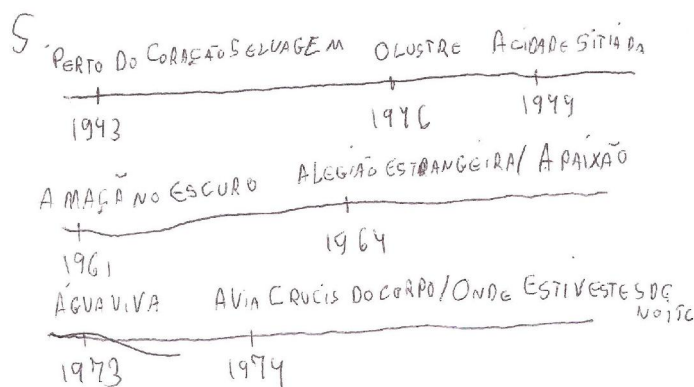 5. PERTO DO CORAÇÃO SELVAGEM O LUSTRE A CIDADE SITIADA
1943 1946 1949
A MAÇÃ NO ESCURO A LEGIÃO ESTRANGEIRA / A PAIXÃO
1961 1964
ÁGUA VIVA A VIA CRUCIS DO CORPO / ONDE ESTIVESTES DE
NOITE
1973 1974